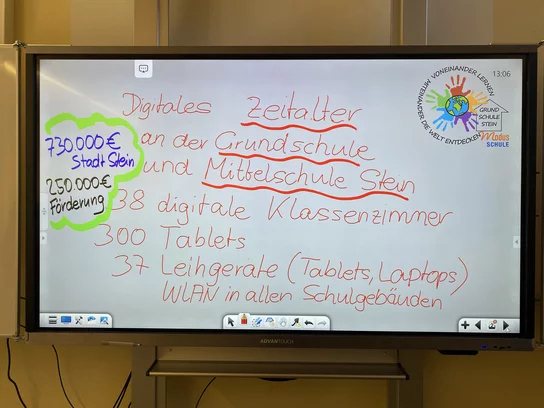 13:06
MITEINANDER VONEINANDER LERNEN
MITEINANDER DIE WELT ENTDECKEN
GRUND
SCHULE
STEIN
Modus
SCHULE
Digitales Zeitalter
an der Grundschule
und Mittelschule Stein
730.000€
Stadt Stein
250.000€
Förderung
38 digitale Klassenzimmer
300 Tablets
37 Leihgeräte (Tablets, Laptops)
WLAN in allen Schulgebäuden
ADVANTOUCH